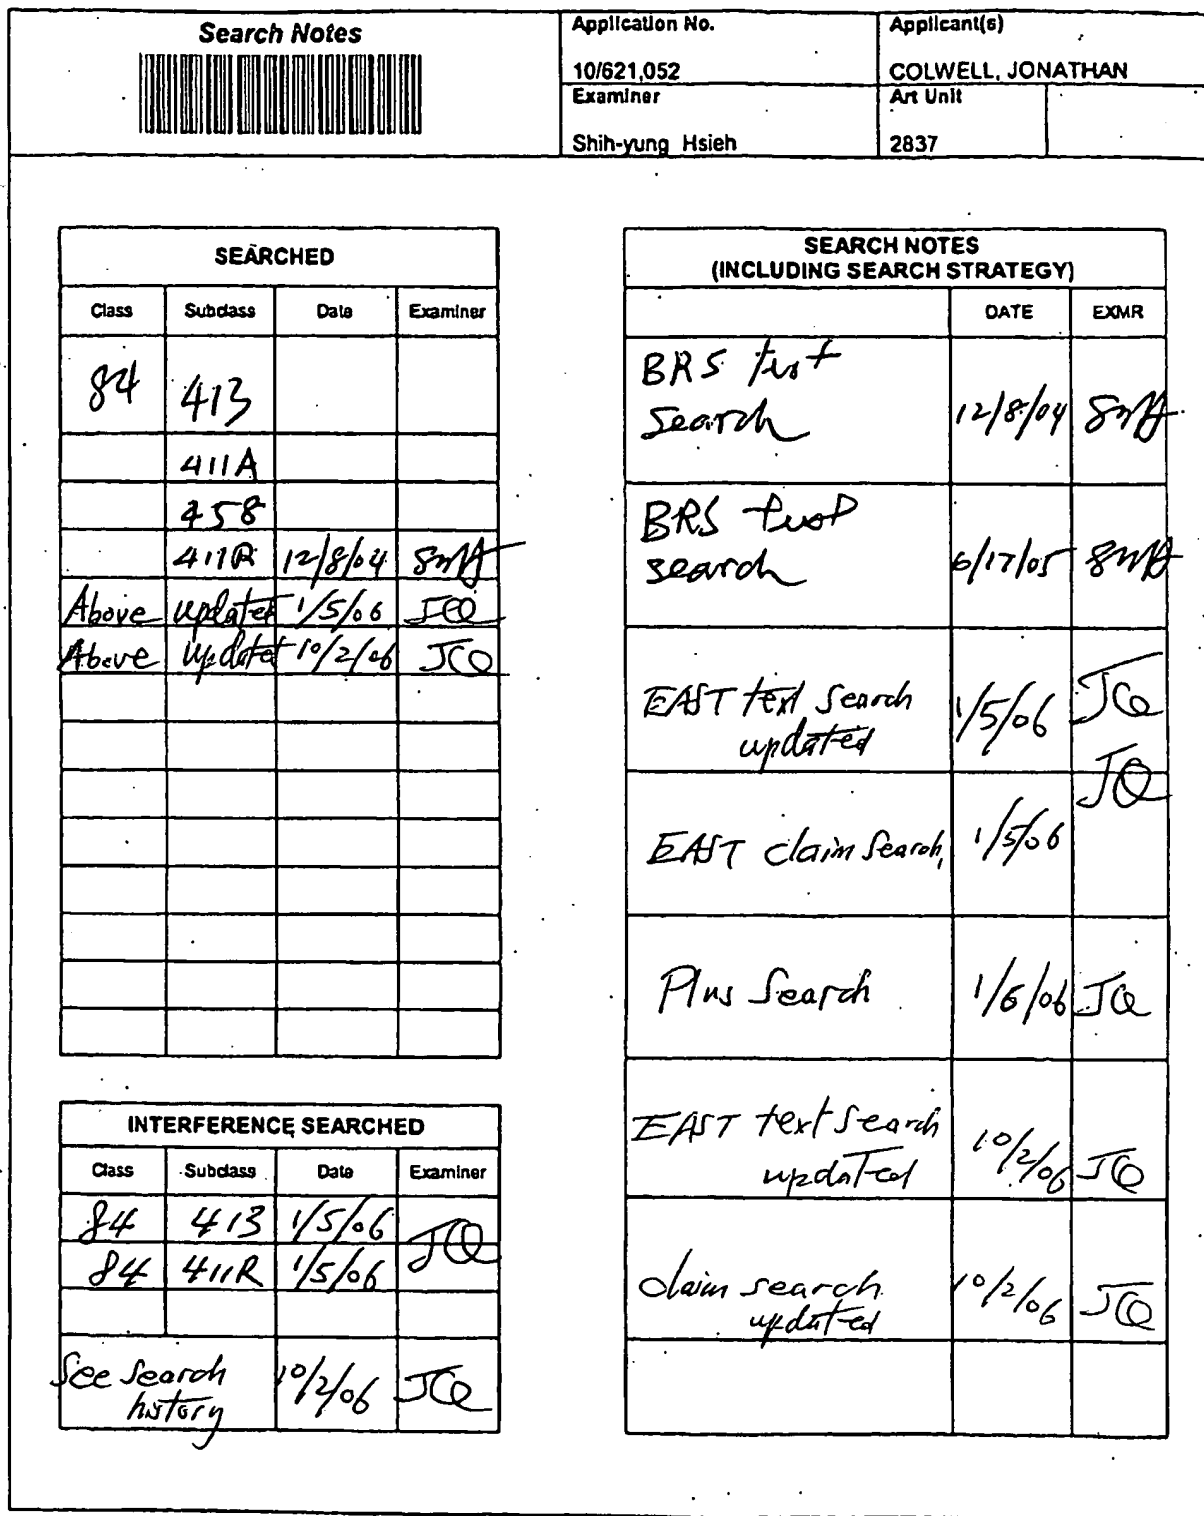 Search Notes
Application No.
10/621,052
Applicant(s)
COLWELL, JONATHAN
Examiner
Shih-yung Hsieh
Art Unit
2837
SEARCHED
Class Subclass Date Examiner
84 413
411A
458
411R 12/8/04
Above updated 1/5/06 JCQ
Above updated 10/2/06 JCQ
INTERFERENCE SEARCHED
Class Subclass Date Examiner
84 413 1/5/06 JCQ
84 411R 1/5/06
See Search
history 10/2/06 JCQ
SEARCH NOTES
(INCLUDING SEARCH STRATEGY)
DATE EXMR
BRS text
Search 12/8/04
BRS text
search 6/17/05
EAST text Search
updated 1/5/06 JCQ
JCQ
EAST claim Search, 1/5/06
Plus Search 1/6/06 JCQ
EAST text Search
updated 10/2/06 JCQ
claim search
updated 10/2/06 JCQ